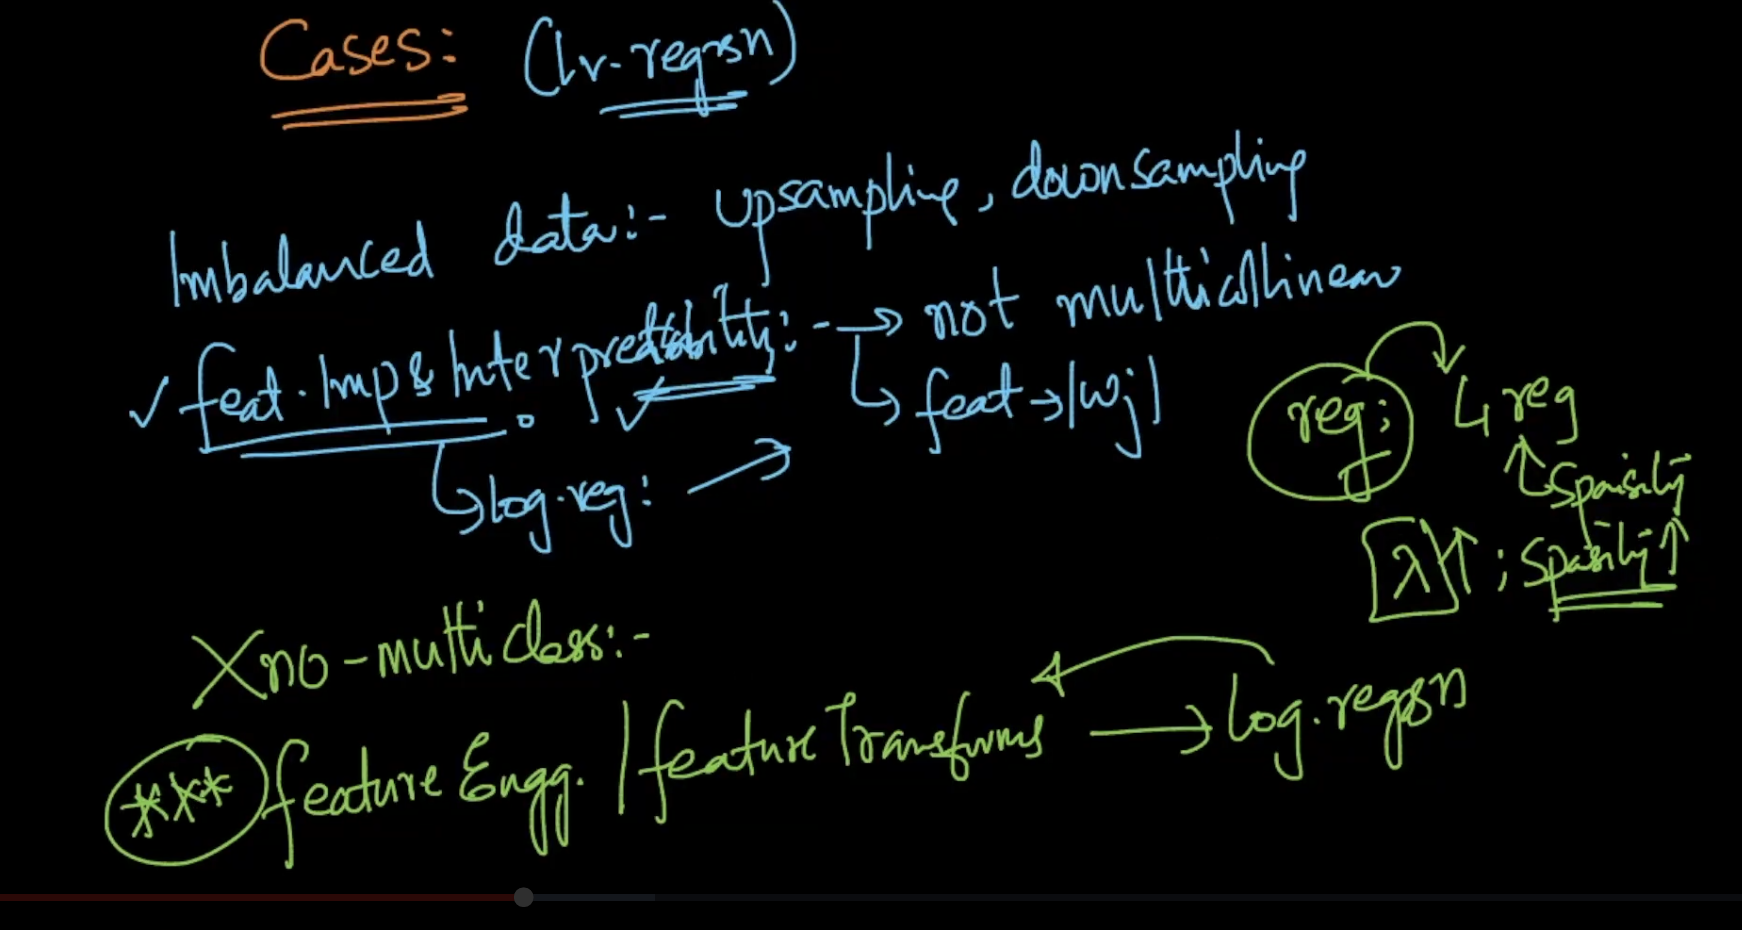 Cases: (lr-regrsn)
Imbalanced data:- upsampling, downsampling
✓ feat. Imp & Interpretability: - → not multicollinear
↳ feat → |wj|
↳ log. reg: →
reg: L1 reg
↑ Sparsity
λ↑ ; Sparsity ↑
X no-multiclass:-
*** feature Engg. / feature Transforms → log. regrsn